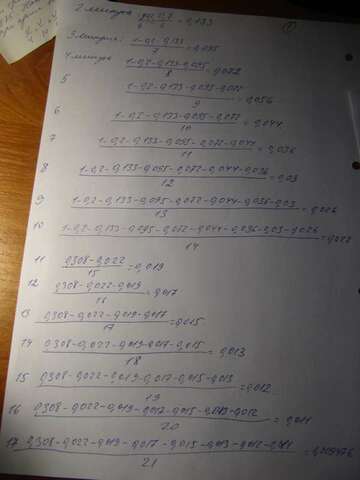 2 минута = 0,133
①
3 минута 1-0,2-0,133 / 7 = 0,095
4 минута 1-0,2-0,133-0,095 / 8 = 0,072
5 1-0,2-0,133-0,095-0,072 / 9 = 0,056
6 / 10 = 0,044
7 / 11 = 0,036
8 1-0,2-0,133-0,095-0,072-0,044-0,036 / 12 = 0,03
9 1-0,2-0,133-0,095-0,072-0,044-0,036-0,03 / 13 = 0,026
10 1-0,2-0,133-0,095-0,072-0,044-0,036-0,03-0,026 / 14 = 0,022
11 0,308-0,022 / 15 = 0,019
12 0,308-0,022-0,019 / 16 = 0,017
13 0,308-0,022-0,019-0,017 / 17 = 0,015
14 0,308-0,022-0,019-0,017-0,015 / 18 = 0,013
15 0,308-0,022-0,019-0,017-0,015-0,013 / 19 = 0,012
16 0,308-0,022-0,019-0,017-0,015-0,013-0,012 / 20 = 0,011
17 0,308-0,022-0,019-0,017-0,015-0,013-0,012-0,011 / 21